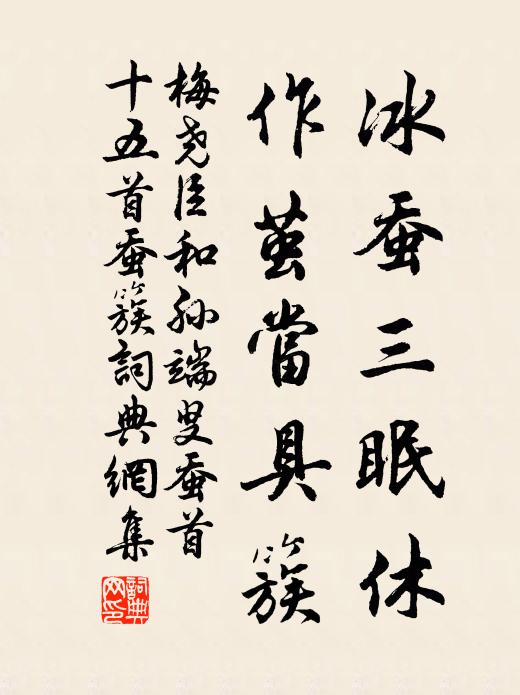 冰蚕三眠休
作茧當具簇
梅尧臣和孙端叟蚕首
十五首蚕簇詞典網集
詞典网印